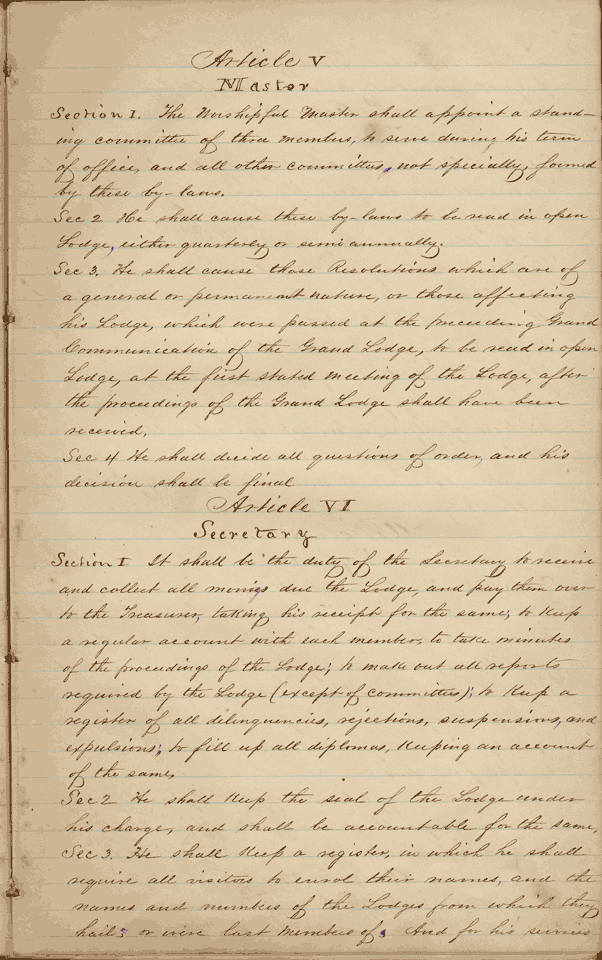 Article V
Master
Section I. The Worshipful Master shall appoint a stand-
ing committee of three members, to serve during his term
of office, and all other committees, not specially, formed
by these by-laws.
Sec 2 He shall cause these by-laws to be read in open
Lodge, either quarterly or semi annually.
Sec 3. He shall cause those Resolutions which are of
a general or permanent nature, or those affecting
his Lodge, which were passed at the preceeding Grand
Communication of the Grand Lodge, to be read in open
Lodge, at the first stated meeting of the Lodge, after
the proceedings of the Grand Lodge shall have been
received.
Sec 4 He shall decide all questions of order, and his
decision shall be final
Article VI
Secretary
Section I It shall be the duty of the Secretary to receive
and collect all monies due the Lodge, and pay them over
to the Treasurer, taking his receipt for the same; to keep
a regular account with each member; to take minutes
of the proceedings of the Lodge; to make out all reports
required by the Lodge (except of committees); to keep a
register of all delinquencies, rejections, suspensions, and
expulsions; to fill up all diplomas, keeping an account
of the same.
Sec 2 He shall keep the seal of the Lodge under
his charge, and shall be accountable for the same,
Sec 3. He shall keep a register, in which he shall
require all visitors to enrol their names, and the
names and numbers of the Lodges from which they
hail; or were last members of. And for his services